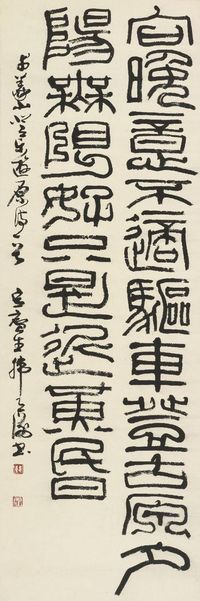 向晚意不適驅車登古原夕
陽無限好只是近黃昏
義山登樂遊原詩一首